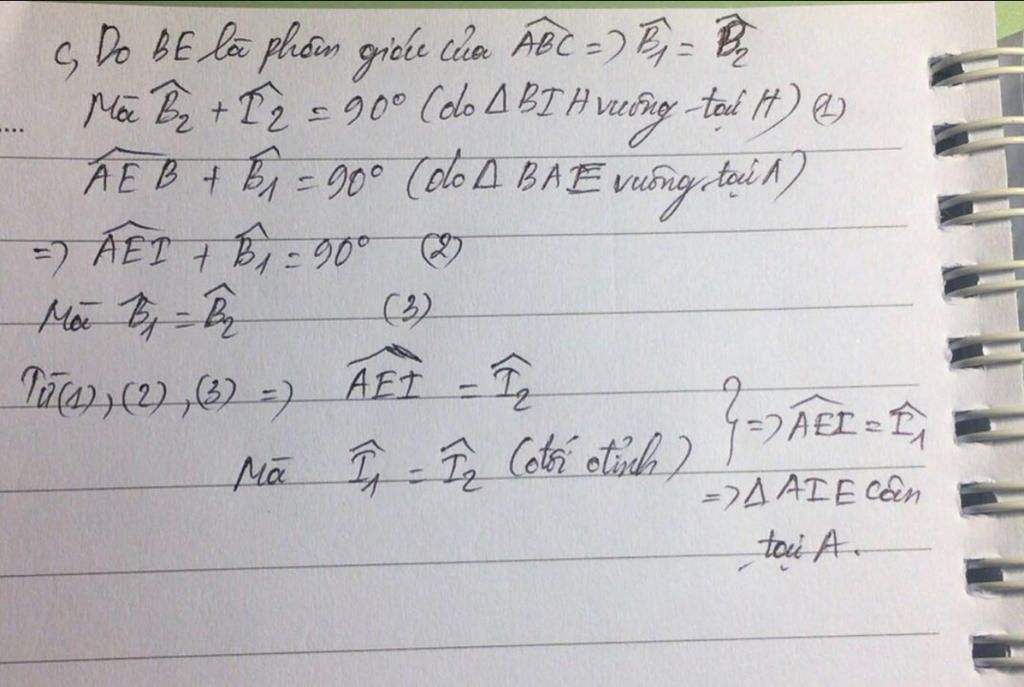 c, Do BE là phân giác của ABC => B̂₁ = B̂₂
Mà B̂₂ + Î₂ = 90° (do Δ BIH vuông tại H) (1)
....
AEB + B̂₁ = 90° (do Δ BAE vuông tại A)
=> AEI + B̂₁ = 90° (2)
Mà B̂₁ = B̂₂ (3)
Từ (1), (2), (3) => AEI = Î₂
Mà Î₁ = Î₂ (đối đỉnh) } => AEI = Î₁
=> Δ AIE cân
tại A.